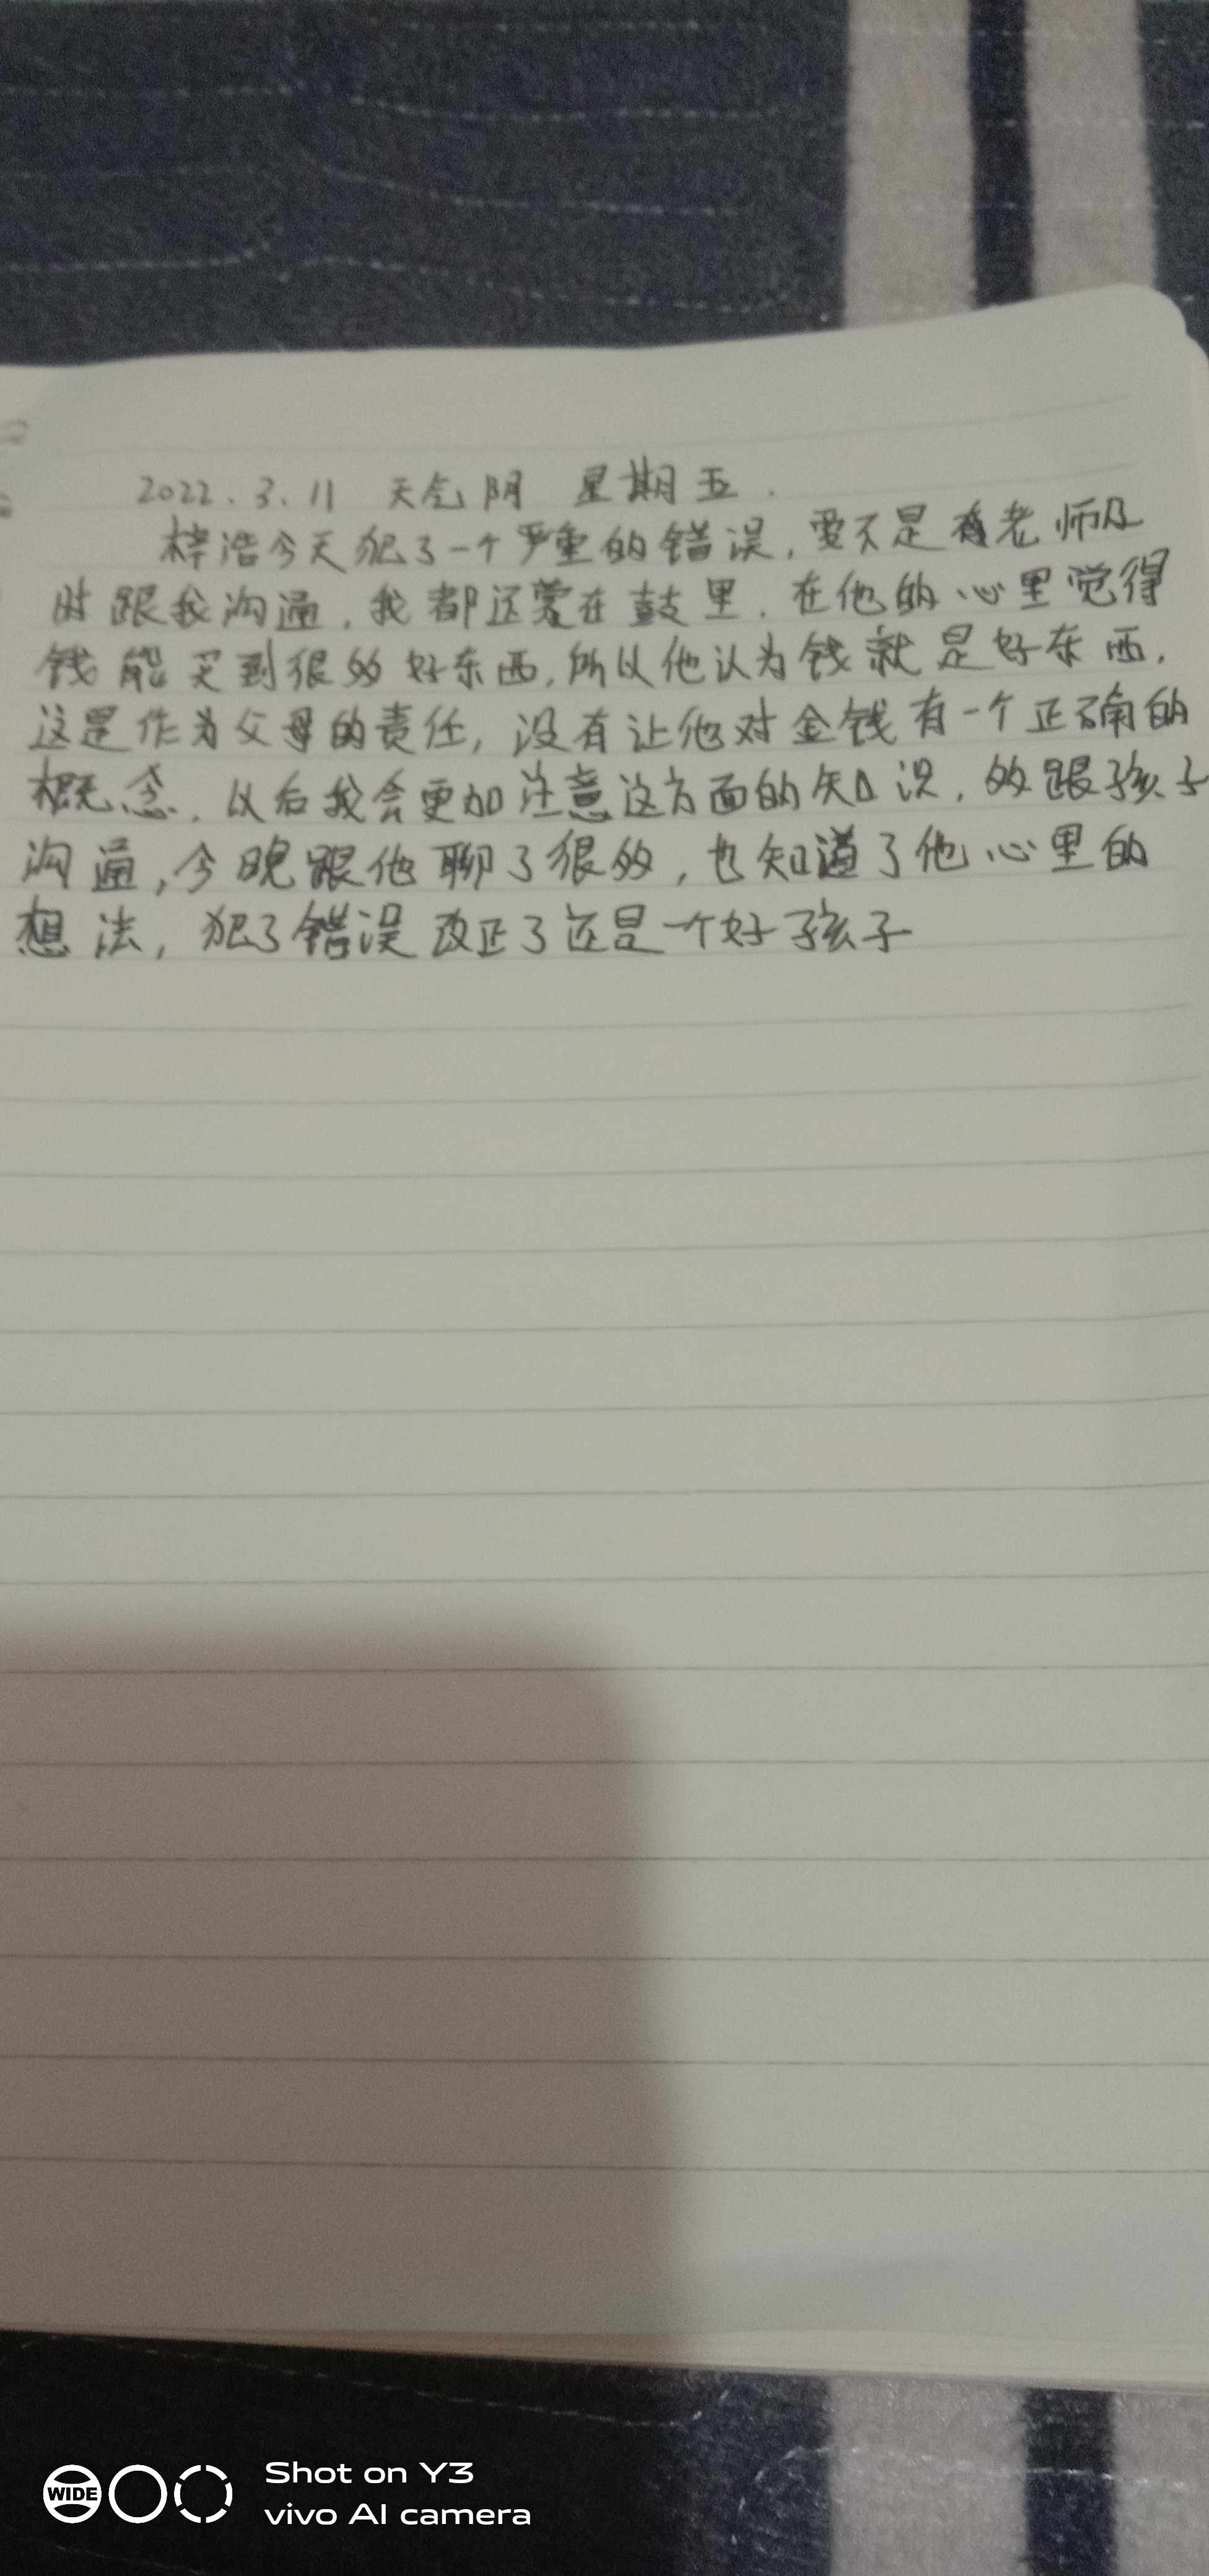 2022.3.11 天气阴 星期五.
梓浩今天犯了一个严重的错误,要不是有老师及
时跟我沟通,我都还蒙在鼓里.在他的心里觉得
钱能买到很多好东西,所以他认为钱就是好东西.
这是作为父母的责任,没有让他对金钱有一个正确的
概念.以后我会更加注意这方面的知识,多跟孩子
沟通,今晚跟他聊了很多,也知道了他心里的
想法,犯了错误改正了还是一个好孩子
WIDE
Shot on Y3
vivo AI camera